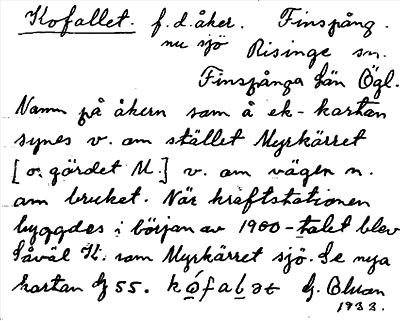 Kofallet. f.d. åker. Finspång.
nu sjö Risinge sn.
Finspånga län Ögl.
Namn på åkern som å ek-kartan
synes v. om stället Myrkärret
[o. gördet M.] v. om vägen n.
om bruket. När kraftstationen
byggdes i början av 1900-talet blev
såväl K. som Myrkärret sjö. Se nya
kartan 55. kófaḷət
1933.